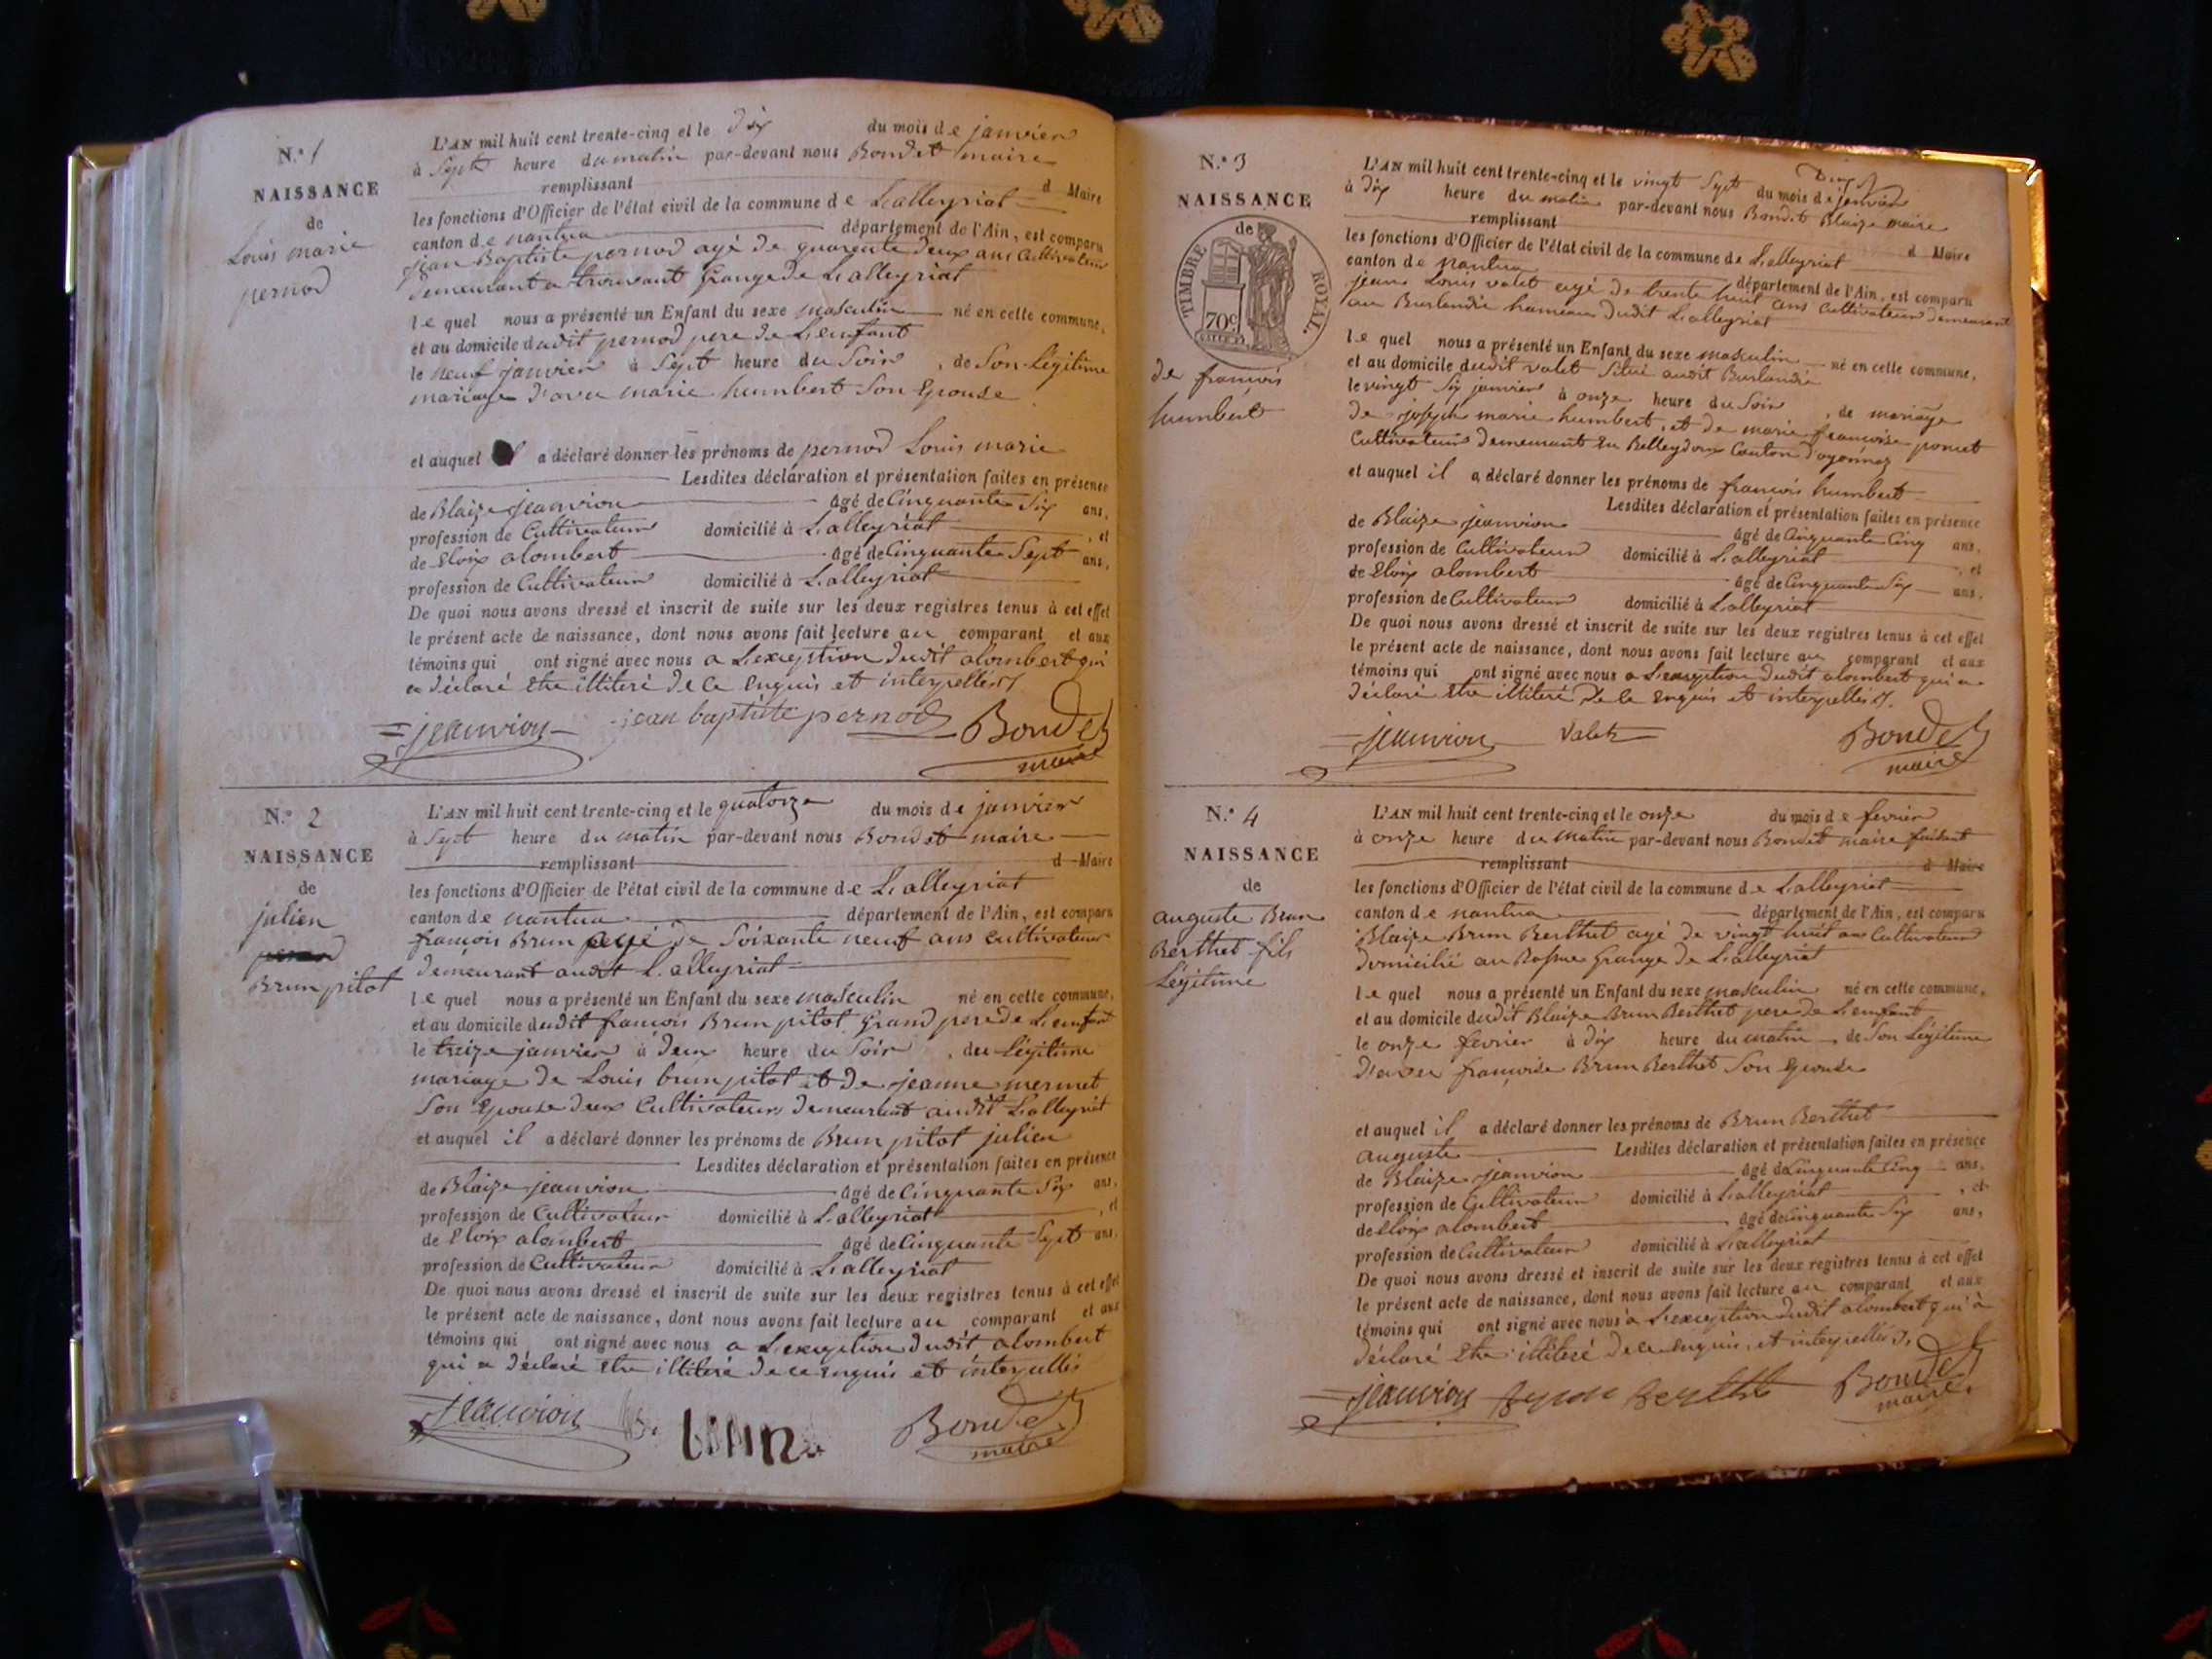 N.º 1
NAISSANCE
de
Louis marie
pernod
L'AN mil huit cent trente-cinq et le dix du mois de janvier
à Sept heure du matin par-devant nous Bondet maire
remplissant d Maire
les fonctions d'Officier de l'état civil de la commune de Lalleyriat
canton de nantua département de l'Ain, est comparu
jean Baptiste pernod agé de quarante deux ans Cultivateur
demeurant a Grange de Lalleyriat
le quel nous a présenté un Enfant du sexe masculin né en cette commune,
et au domicile dudit pernod pere de L'enfant
le neuf janvier à Sept heure du Soir, de Son Légitime
mariage d'avec marie humbert Son Epouse
et auquel il a déclaré donner les prénoms de pernod Louis marie
Lesdites déclaration et présentation faites en présence
de Blaize jeanvion âgé de Cinquante Six ans,
profession de Cultivateur domicilié à Lalleyriat, et
de Eloix alombert âgé de Cinquante Sept ans,
profession de Cultivateur domicilié à Lalleyriat
De quoi nous avons dressé et inscrit de suite sur les deux registres tenus à cet effet
le présent acte de naissance, dont nous avons fait lecture au comparant et aux
témoins qui ont signé avec nous a L'exception dudit alombert qui
a déclaré Etre illiteré de ce Enquis et interpellés
jeanvion jean baptiste pernod Bondet
maire
N.º 2
NAISSANCE
de
julien
pernod
Brun pitot
L'AN mil huit cent trente-cinq et le quatorze du mois de janvier
à Sept heure du matin par-devant nous Bondet maire
remplissant d Maire
les fonctions d'Officier de l'état civil de la commune de Lalleyriat
canton de nantua département de l'Ain, est comparu
françois Brun agé de Soixante neuf ans cultivateur
demeurant audit Lalleyriat
le quel nous a présenté un Enfant du sexe masculin né en cette commune,
et au domicile dudit françois Brun pitot Grand pere de L'enfant
le treize janvier à deux heure du Soir, du Légitime
mariage de Louis brun pitot et de jeanne mermet
Son Epouse deux Cultivateurs demeurant audit Lalleyriat
et auquel il a déclaré donner les prénoms de Brun pitot julien
Lesdites déclaration et présentation faites en présence
de Blaize jeanvion âgé de Cinquante Six ans,
profession de Cultivateur domicilié à Lalleyriat, et
de Eloix alombert âgé de Cinquante Sept ans,
profession de Cultivateur domicilié à Lalleyriat
De quoi nous avons dressé et inscrit de suite sur les deux registres tenus à cet effet
le présent acte de naissance, dont nous avons fait lecture au comparant et aux
témoins qui ont signé avec nous a L'exception dudit alombert
qui a déclaré Etre illiteré de ce Enquis et interpellés
jeanvion Bondet
maire
N.º 3
NAISSANCE
de
TIMBRE ROYAL.
70c.
de françois
humbert
L'AN mil huit cent trente-cinq et le vingt Sept du mois de janvier
à dix heure du matin par-devant nous Bondet Blaize maire
remplissant d Maire
les fonctions d'Officier de l'état civil de la commune de Lalleyriat
canton de Nantua département de l'Ain, est comparu
jean Louis valet agé de trente huit ans Cultivateur demeurant
au Burlandié hameau dudit Lalleyriat
le quel nous a présenté un Enfant du sexe masculin né en cette commune,
et au domicile dudit valet Situé audit Burlandié
le vingt Six janvier à onze heure du Soir, de mariage
de joseph marie humbert, et de marie françoise poncet
Cultivateurs demeurant du Belleydoux Canton d'oyonnaz
et auquel il a déclaré donner les prénoms de françois humbert
Lesdites déclaration et présentation faites en présence
de Blaize jeanvion âgé de Cinquante Cinq ans,
profession de Cultivateur domicilié à Lalleyriat, et
de Eloix alombert âgé de Cinquante Six ans,
profession de Cultivateur domicilié à Lalleyriat
De quoi nous avons dressé et inscrit de suite sur les deux registres tenus à cet effet
le présent acte de naissance, dont nous avons fait lecture au comparant et aux
témoins qui ont signé avec nous a L'exception dudit alombert qui a
déclaré Etre illiteré de ce Enquis et interpellés
jeanvion Valet Bondet
maire
N.º 4
NAISSANCE
de
auguste Brun
Berthet fils
Légitime
L'AN mil huit cent trente-cinq et le onze du mois de fevrier
à onze heure du matin par-devant nous Bondet maire faisant
remplissant d Maire
les fonctions d'Officier de l'état civil de la commune de Lalleyriat
canton de nantua département de l'Ain, est comparu
Blaize Brun Berthet agé de vingt huit ans Cultivateur
domicilié au Grange de Lalleyriat
le quel nous a présenté un Enfant du sexe masculin né en cette commune,
et au domicile dudit Blaize Brun Berthet pere de L'enfant
le onze fevrier à dix heure du matin, de Son Légitime
d'avec françoise Brun Berthet Son Epouse
et auquel il a déclaré donner les prénoms de Brun Berthet
auguste Lesdites déclaration et présentation faites en présence
de Blaize jeanvion âgé de Cinquante Cinq ans,
profession de Cultivateur domicilié à Lalleyriat, et
de Eloix alombert âgé de Cinquante Six ans,
profession de Cultivateur domicilié à Lalleyriat
De quoi nous avons dressé et inscrit de suite sur les deux registres tenus à cet effet
le présent acte de naissance, dont nous avons fait lecture au comparant et aux
témoins qui ont signé avec nous a L'exception dudit alombert qui à
déclaré Etre illiteré de ce Enquis et interpellés
jeanvion Berthet Bondet
maire